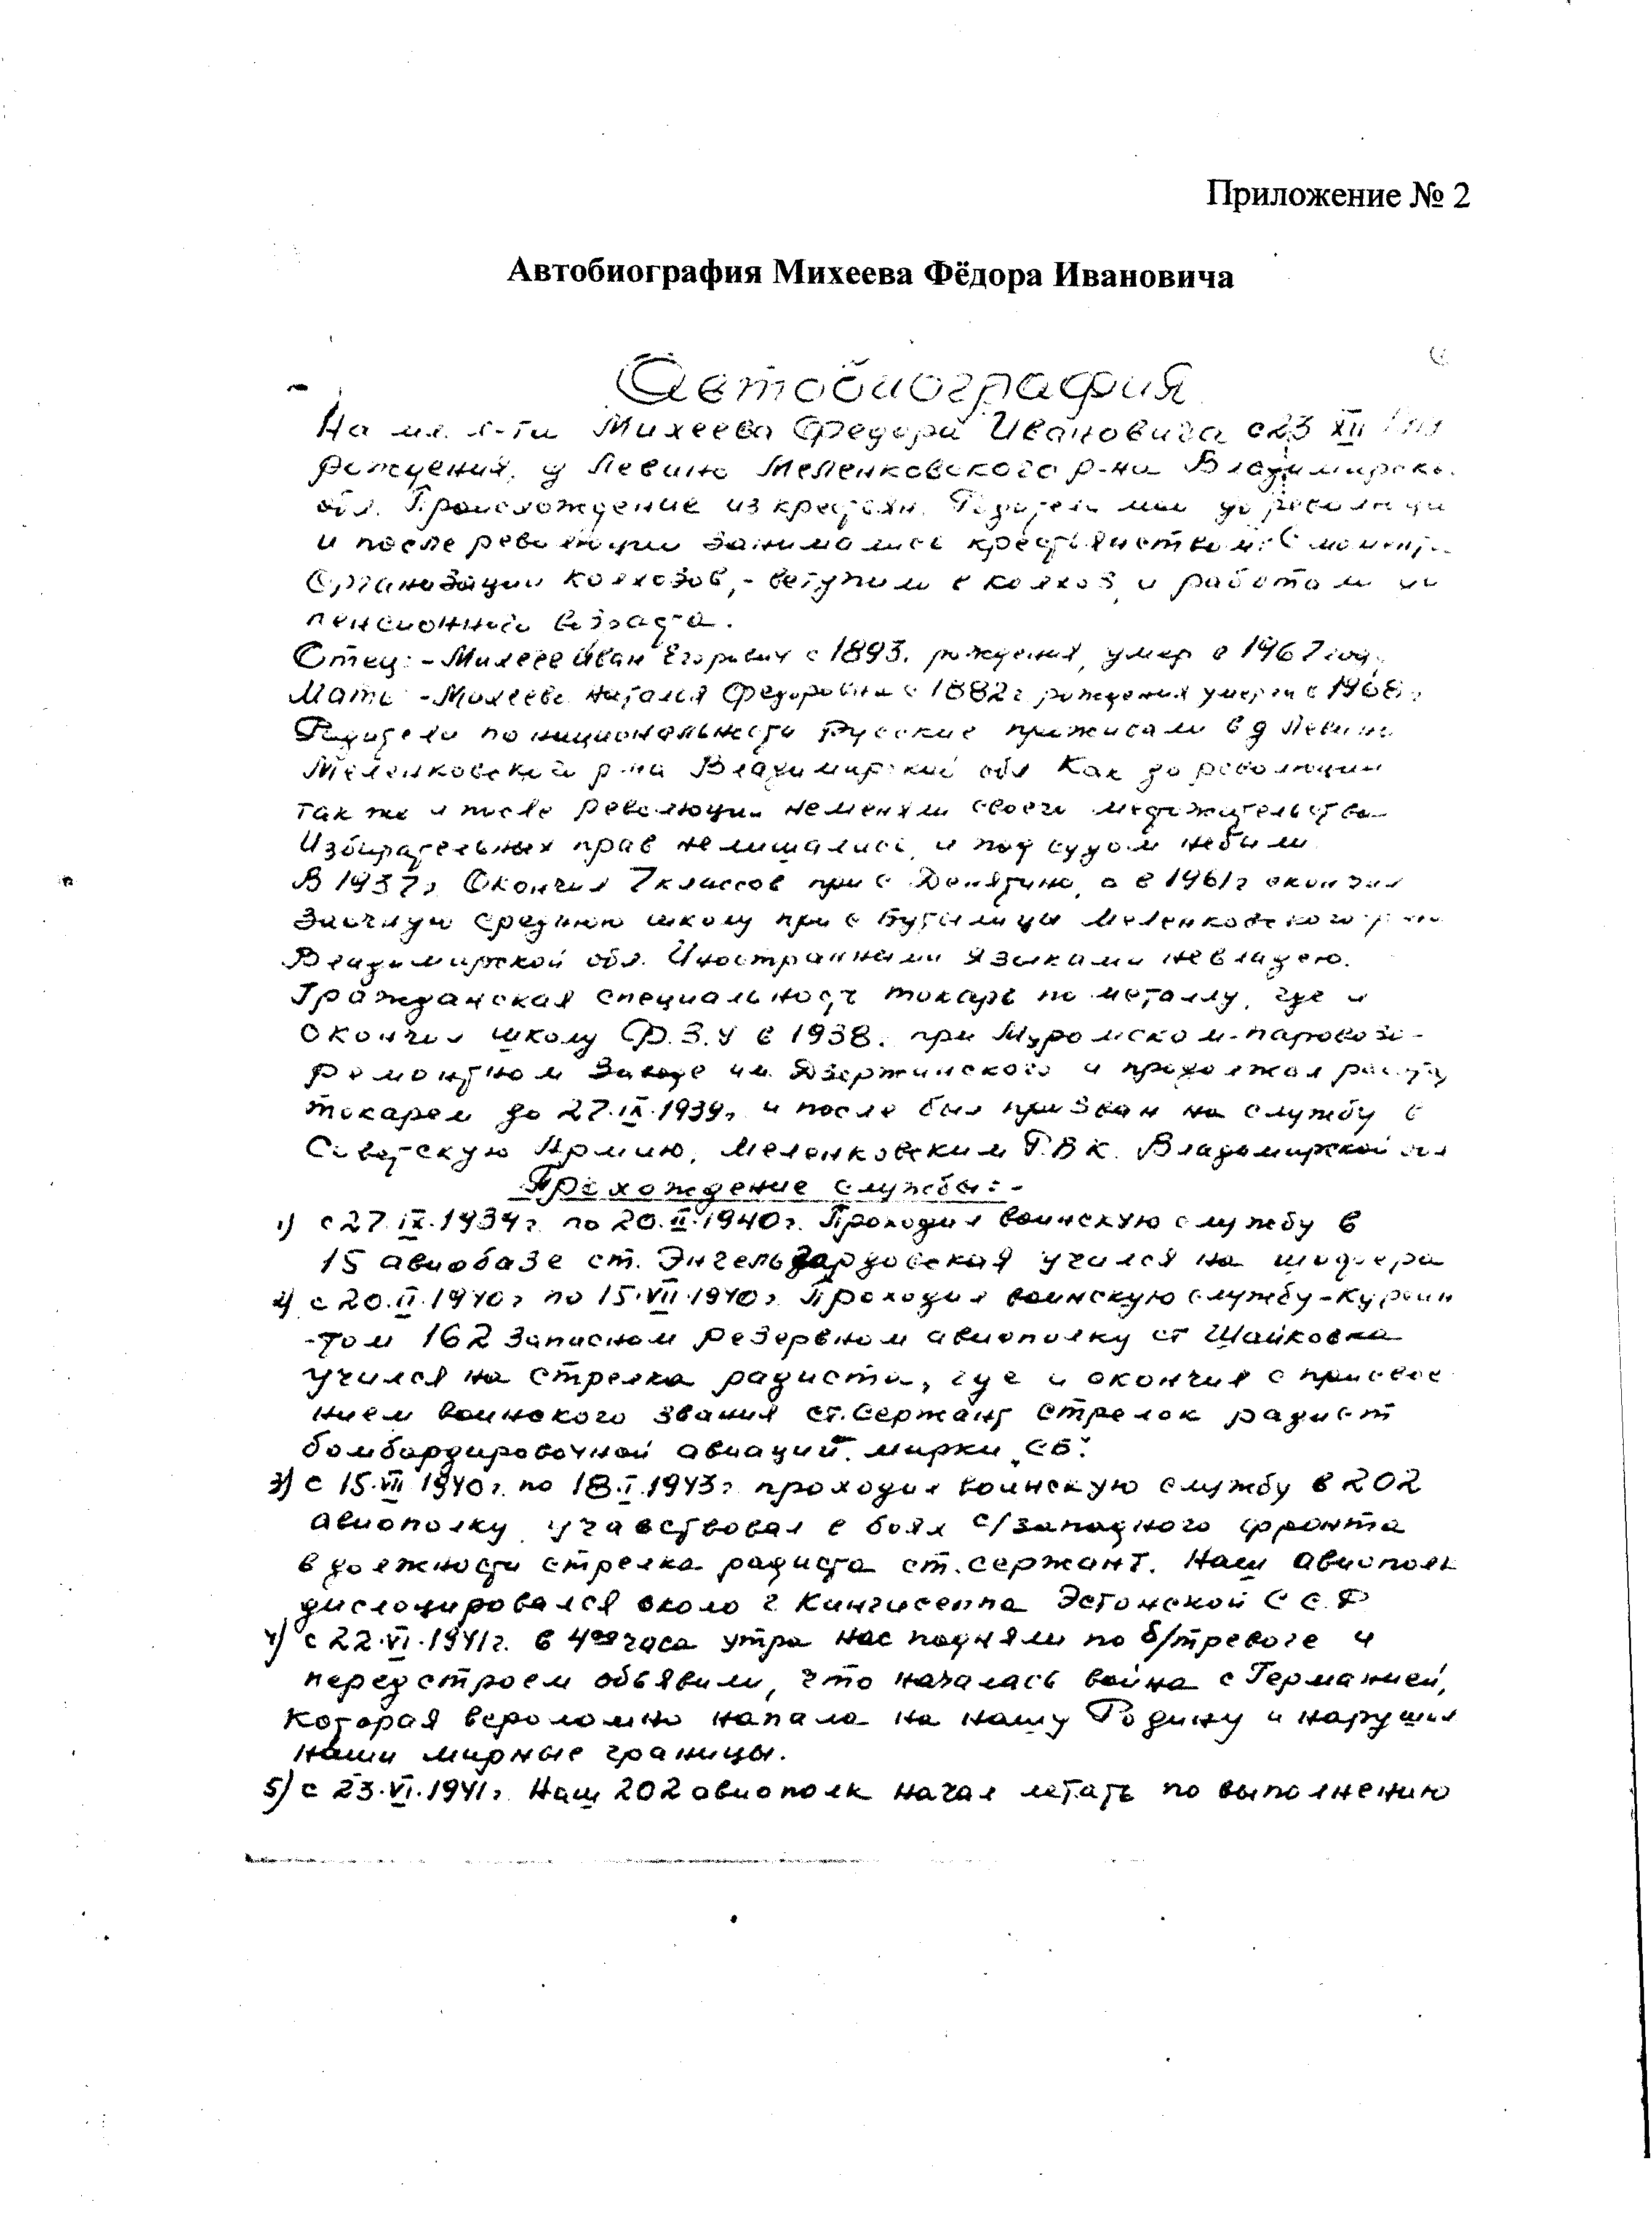 Приложение № 2
Автобиография Михеева Фёдора Ивановича
Автобиография
На мл. л-та Михеева Федора Ивановича с 23 XII
рождения, д Левино Меленковского р-на Владимирско.
обл. Происхождение из крестьян. Родители мои до революции
и после революции занимались крестьянством. С момента
Организации колхозов,- вступили в колхоз, и работали
пенсионного возраста.
Отец:- Михеев Иван Егорович с 1893. рождения, умер в 1967 году
Мать - Михеева Наталья Федоровна с 1882г рождения умерла в 1968г
Родители по национальности Русские проживали в д Левино
Меленковский р-на Владимирской обл Как до революции
так же и после революции неменяли своего местожительства
Избирательных прав нелишались, и под судом небыли
В 1937г Окончил 7 классов при с Денятино, а в 1961г окончил
Заочную среднюю школу при с Бутылицы Меленковского р-на
Владимирской обл. Иностранными языками невладею.
Гражданская специальность токарь по металлу, где и
окончил школу Ф.З.У в 1938. при Муромском-паровозо-
ремонтном Заводе им. Дзержинского и продолжал работу
токарем до 27.IX.1939г и после был призван на службу в
Советскую Армию, Меленковским Г.В.К. Владимирской обл
Прохождение службы:-
1) с 27.IX.1939г. по 20.II.1940г. Проходил воинскую службу в
15 авиобазе ст. Энгельгардовская учился на шофера
2) с 20.II.1940г по 15.VII.1940г. Проходил воинскую службу-курсан
-том 162 Запасном резервном авиополку ст Шайковка
учился на стрелка радиста, где и окончил с присвое
нием воинского звания ст.Сержант стрелок радист
бомбардировочной авиации. марки "СБ".
3) с 15.VII 1940г. по 18.I.1943г проходил воинскую службу в 202
авиополку учавствовал в боях с/западного фронта
в должности стрелка радиста ст.сержант. Наш авиополк
дислоцировался около г Кингисеппа Эстонской С С.Р
4) с 22.VI.1941г. в 4 00 часа утра нас подняли по б/тревоге и
перед строем объявили, что началась война с Германией,
которая вероломно напала на нашу Родину и нарушил
наши мирные границы.
5) с 23.VI.1941г. Наш 202 авиополк начал летать по выполнению